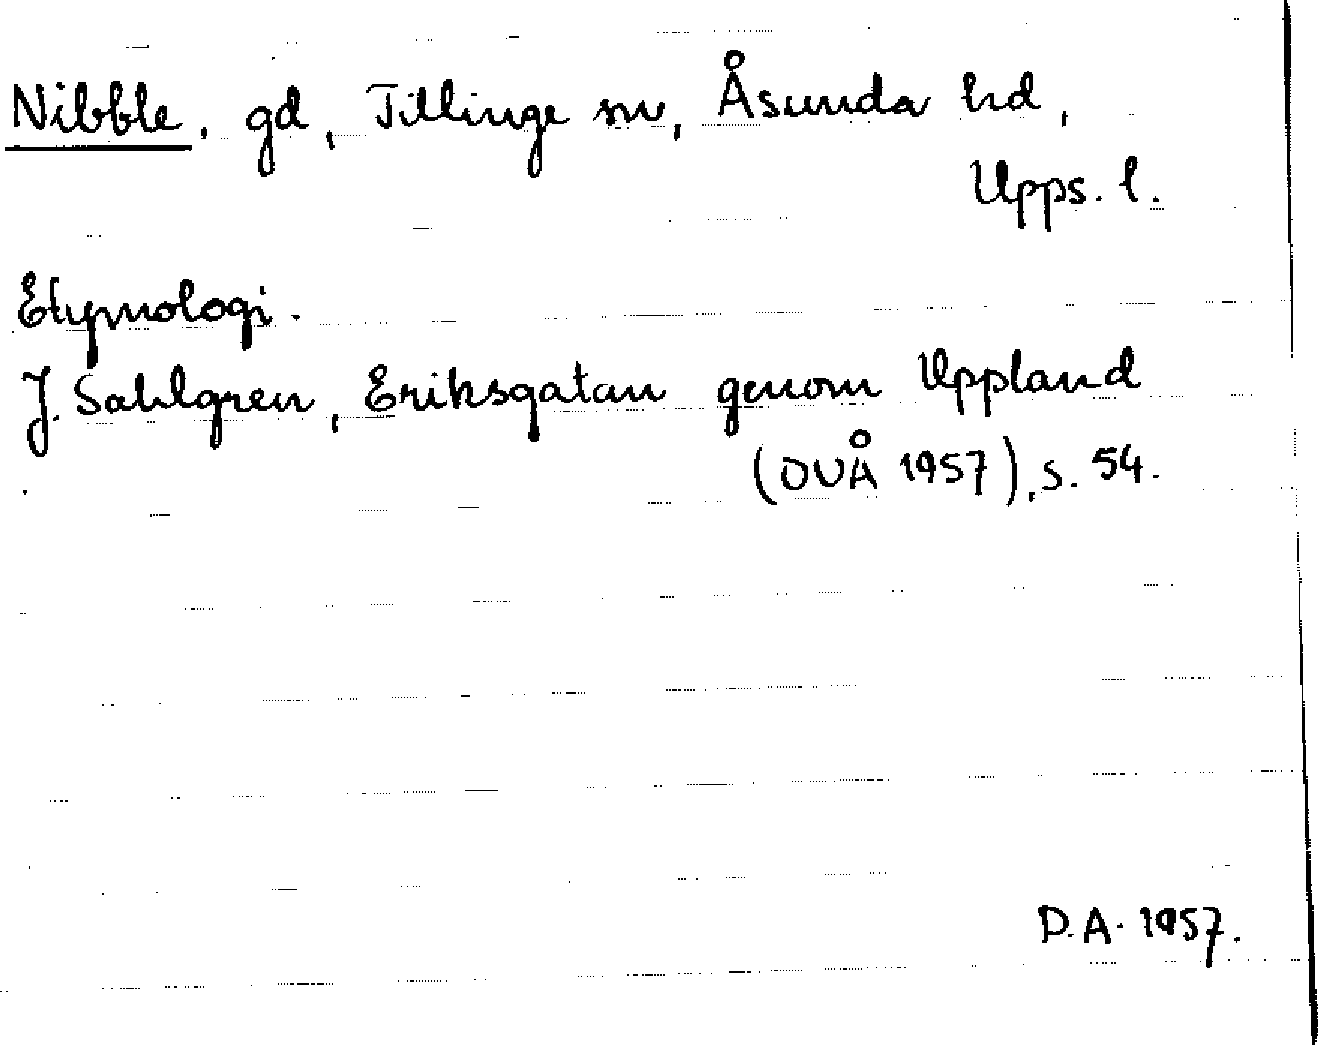 Nibble, gd, Tillinge sn, Åsunda hd,
Upps. l.
Etymologi.
J. Sahlgren, Eriksgatan genom Uppland
(OUÅ 1957), s. 54.
D.A. 1957.